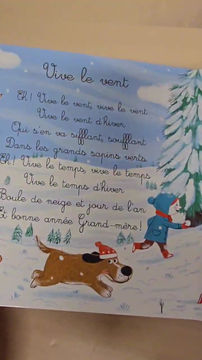 Vive le vent
Eh ! Vive le vent, vive le vent
Vive le vent d'hiver
Qui s'en va sifflant, soufflant
Dans les grands sapins verts
Eh ! Vive le temps, vive le temps
Vive le temps d'hiver
Boule de neige et jour de l'an
Et bonne année Grand-mère !